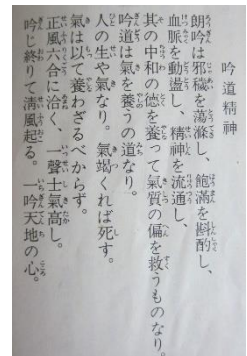 吟道精神
朗吟は邪穢を蕩滌し、飽滿を斟酌し、
血脈を動盪し、精神を流通し、
其の中和の徳を養って氣質の偏を救うものなり。
吟道は氣を養うの道なり。
人の生や氣なり。氣竭くれば死す。
氣は以て養わざるべからず。
正風六合に洽く、一聲士氣高し。
吟じ終りて淸風起る。一吟天地の心。